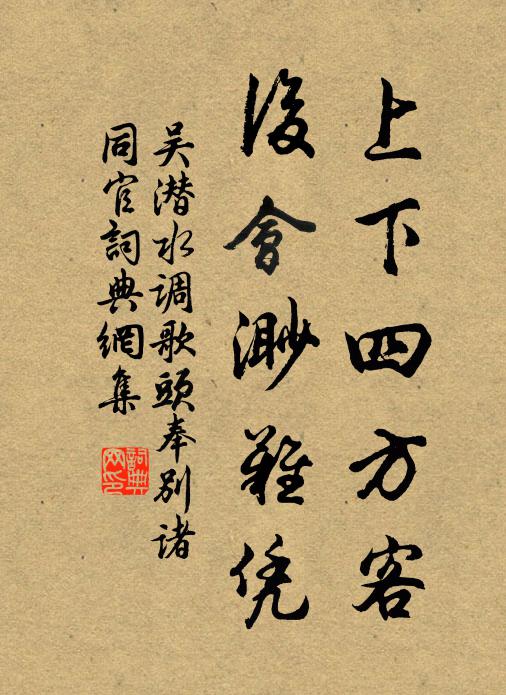 上下四方客
後會渺難凭
吴潜水调歌頭奉别诸
同官詞典網集
詞典
网印